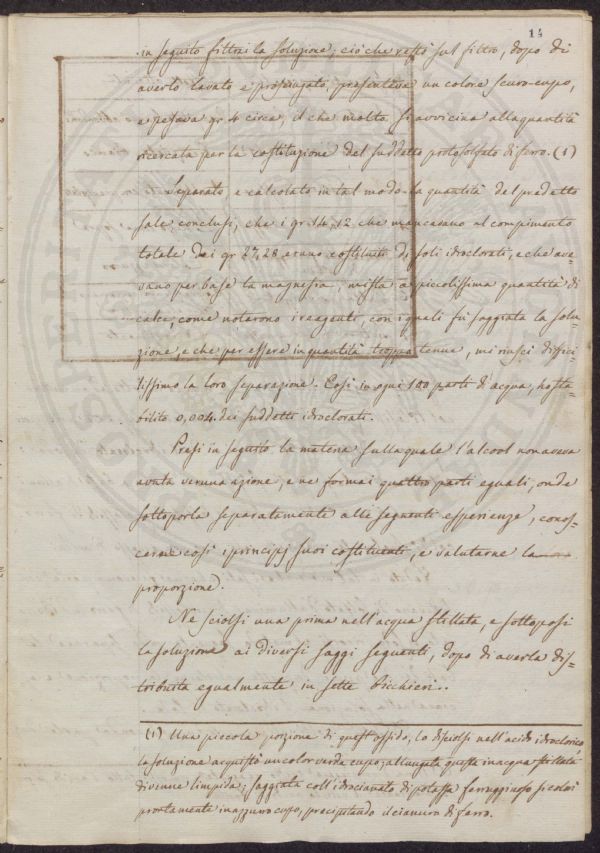 14
in seguito filtrai la soluzione; ciò che restò sul filtro, dopo di
averlo lavato e prosciugato, presentava un colore scuro-cupo,
e pesava gr. 4 circa, il che molto si avvicina alla quantità
ricercata per la costituzione del suddetto protosolfato di ferro. (1)
Separato e calcolato in tal modo la quantità del predetto
sale, conclusi, che i gr. 14,12 che mancavano al compimento
totale dei gr. 27,28 erano costituiti di soli idroclorati, e che ave-
vano per base la magnesia, mista a picolissima quantità di
calce, come notarono i reagenti, con i quali fù saggiata la solu-
zione, e che per essere in quantità troppo tenue, mi riuscì diffici
lissimo la loro separazione. Così in ogni 100 parti d'acqua, hò sta-
bilito 0,004. dei suddetti idroclorati.
Presi in seguito la materia sulla quale l'alcool non aveva
avuta veruna azione, e ne formai quattro parti eguali, onde
sottoporla separatamente alle seguenti esperienze, conos-
cerne così i principj suoi costituenti, e valutarne la
proporzione.
Ne sciolsi una prima nell'acqua stillata, e sottoposi
la soluzione ai diversi saggi seguenti, dopo di averla dis-
tribuita egualmente in sette bicchieri.
(1) Una piccola porzione di quest'ossido, lo disciolsi nell'acido idroclorico,
la soluzione acquistò un color verde cupo; allungata questa in acqua stillata
divenne limpida; saggiata coll'idrocianato di potassa ferruginoso si colorì
prontamente in azzurro cupo, precipitando il cianuro di ferro.